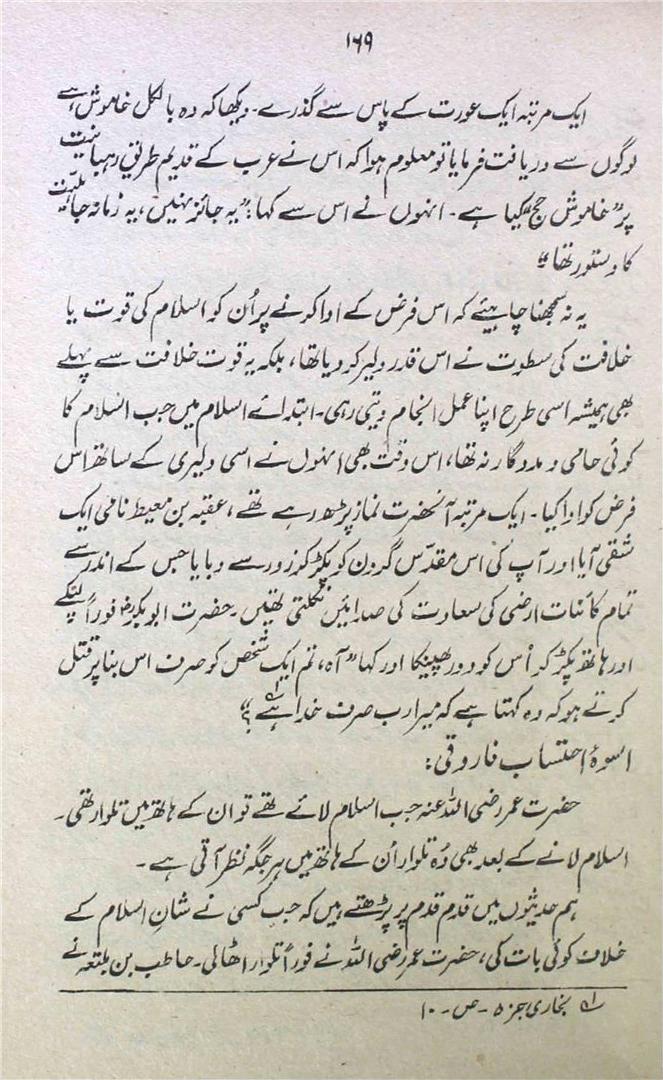 ۱۶۹
ایک مرتبہ ایک عورت کے پاس سے گذرے۔ دیکھا کہ وہ بالکل خاموش ہے
لوگوں سے دریافت فرمایا تو معلوم ہوا کہ اس نے عرب کے قدیم طریق رہبانیت
پر "خاموش حج" کیا ہے۔ انہوں نے اس سے کہا: "یہ جائز نہیں، یہ زمانہ جاہلیت
کا دستور تھا"
یہ نہ سمجھنا چاہیئے کہ اس فرض کے ادا کرنے پر اُن کو اسلام کی قوت یا
خلافت کی سطوت نے اس قدر دلیر کر دیا تھا، بلکہ یہ قوت خلافت سے پہلے
بھی ہمیشہ اسی طرح اپنا عمل انجام دیتی رہی۔ ابتدائے اسلام میں جب اسلام کا
کوئی حامی و مددگار نہ تھا، اس وقت بھی انہوں نے اسی دلیری کے ساتھ اس
فرض کو ادا کیا۔ ایک مرتبہ آنحضرت نماز پڑھ رہے تھے، عقبہ بن معیط نامی ایک
شقی آیا اور آپ کی اس مقدّس گردن کو پکڑ کر زور سے دبایا جس کے اندر سے
تمام کائنات ارضی کی سعادت کی صدائیں نکلتی تھیں۔ حضرت ابوبکرؓ فوراً لپکے
اور ہاتھ پکڑ کر اُس کو دور پھینکا اور کہا "آہ، تم ایک شخص کو صرف اس بنا پر قتل
کرتے ہو کہ وہ کہتا ہے کہ میرا رب صرف خدا ہے؟"؎۱
اسوۂ احتساب فاروقی:
حضرت عمر رضی اللہ عنہ جب اسلام لائے تھے تو ان کے ہاتھ میں تلوار تھی۔
اسلام لانے کے بعد بھی وہ تلوار اُن کے ہاتھ میں ہر جگہ نظر آتی ہے۔
ہم حدیثوں میں قدم قدم پر پڑھتے ہیں کہ جب کسی نے شانِ اسلام کے
خلاف کوئی بات کی، حضرت عمر رضی اللہ نے فوراً تلوار اٹھالی۔ حاطب بن بلتعہ نے
؎۱ بخاری جز ۵ - ص - ۱۰